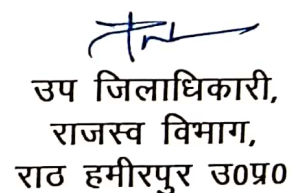 उप जिलाधिकारी,
राजस्व विभाग,
राठ हमीरपुर उ0प्र0